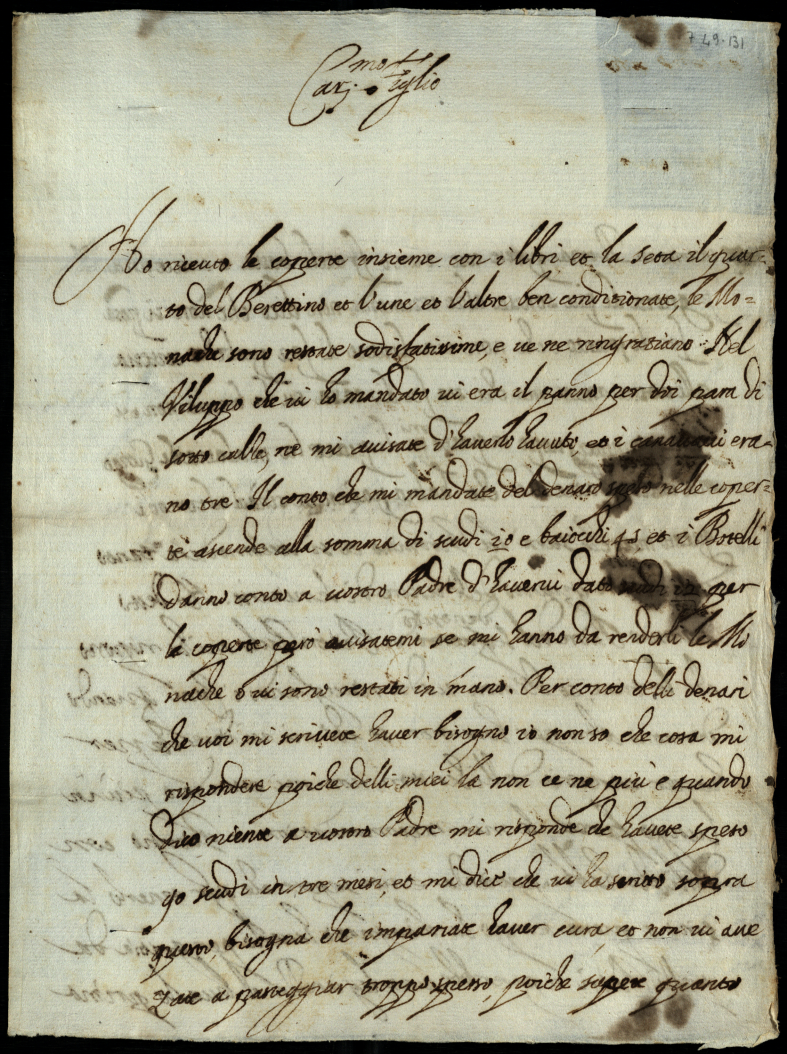 7 49.131
Car.mo figlio
Ho riceuto le coperte insieme con i libri et la seta il quar=
to del Berettino et l'une et l'altre ben conditionate, le Mo=
nache sono restate sodisfatissime, e ve ne ringratiano. Nel
Viluppo che vi ho mandato vi era il panno per doi para di
sotto calze, ne mi avisate d'haverlo havuto, et i era=
no tre. Il conto che mi mandate del denaro speso nelle coper=
te ascende alla somma di scudi e baiocchi 45 et i
danno conto a vostro Padre d'havervi dato scudi per
la coperte però avisatemi se mi hanno da renderli le Mo
nache o vi sono restati in mano. Per conto delli denari
che voi mi scrivete haver bisogno io non so che cosa mi
rispondere poiche delli miei la non ce ne più e quando
dico niente a vostro Padre mi risponde che havete speso
90 scudi in tre mesi, et mi dice che vi ha scritto sopra
questo, bisogna che impariate haver cura, et non vi ave
zate a passeggiar troppo spesso, poiche sapete quanto